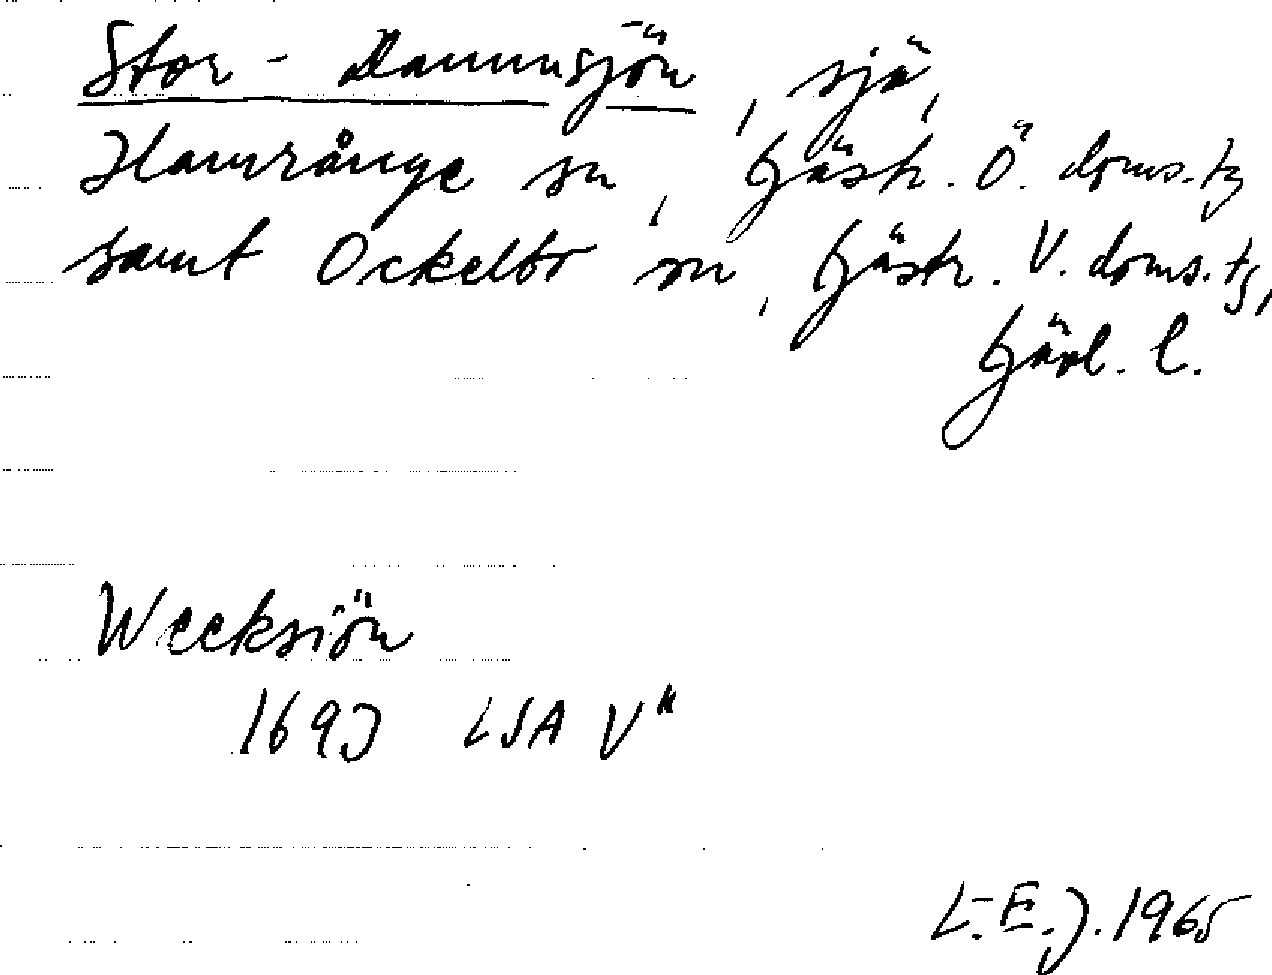 Stor-Dammsjön, sjö,
Hamrånge sn, Gästr. Ö. doms.tg
samt Ockelbo sn, Gästr. V. doms.tg,
Gävl. l.
Weeksiön
1693 LSA V"
L.E.J. 1965